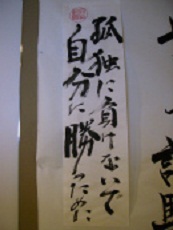 孤独に負けないで
自分に勝つために